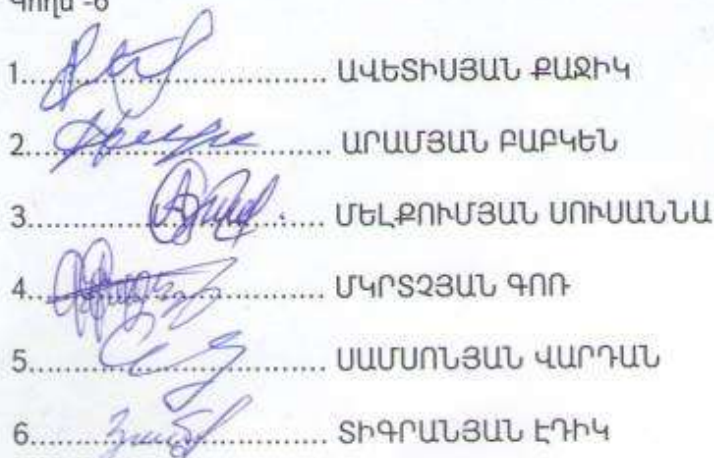 Կողմ -6
1.............................. ԱՎԵՏԻՍՅԱՆ ՔԱՋԻԿ
2.............................. ԱՐԱՄՅԱՆ ԲԱԲԿԵՆ
3.............................. ՄԵԼՔՈՒՄՅԱՆ ՍՈՒՍԱՆՆԱ
4.............................. ՄԿՐՏՉՅԱՆ ԳՈՌ
5.............................. ՍԱՄՍՈՆՅԱՆ ՎԱՐԴԱՆ
6.............................. ՏԻԳՐԱՆՅԱՆ ԷԴԻԿ